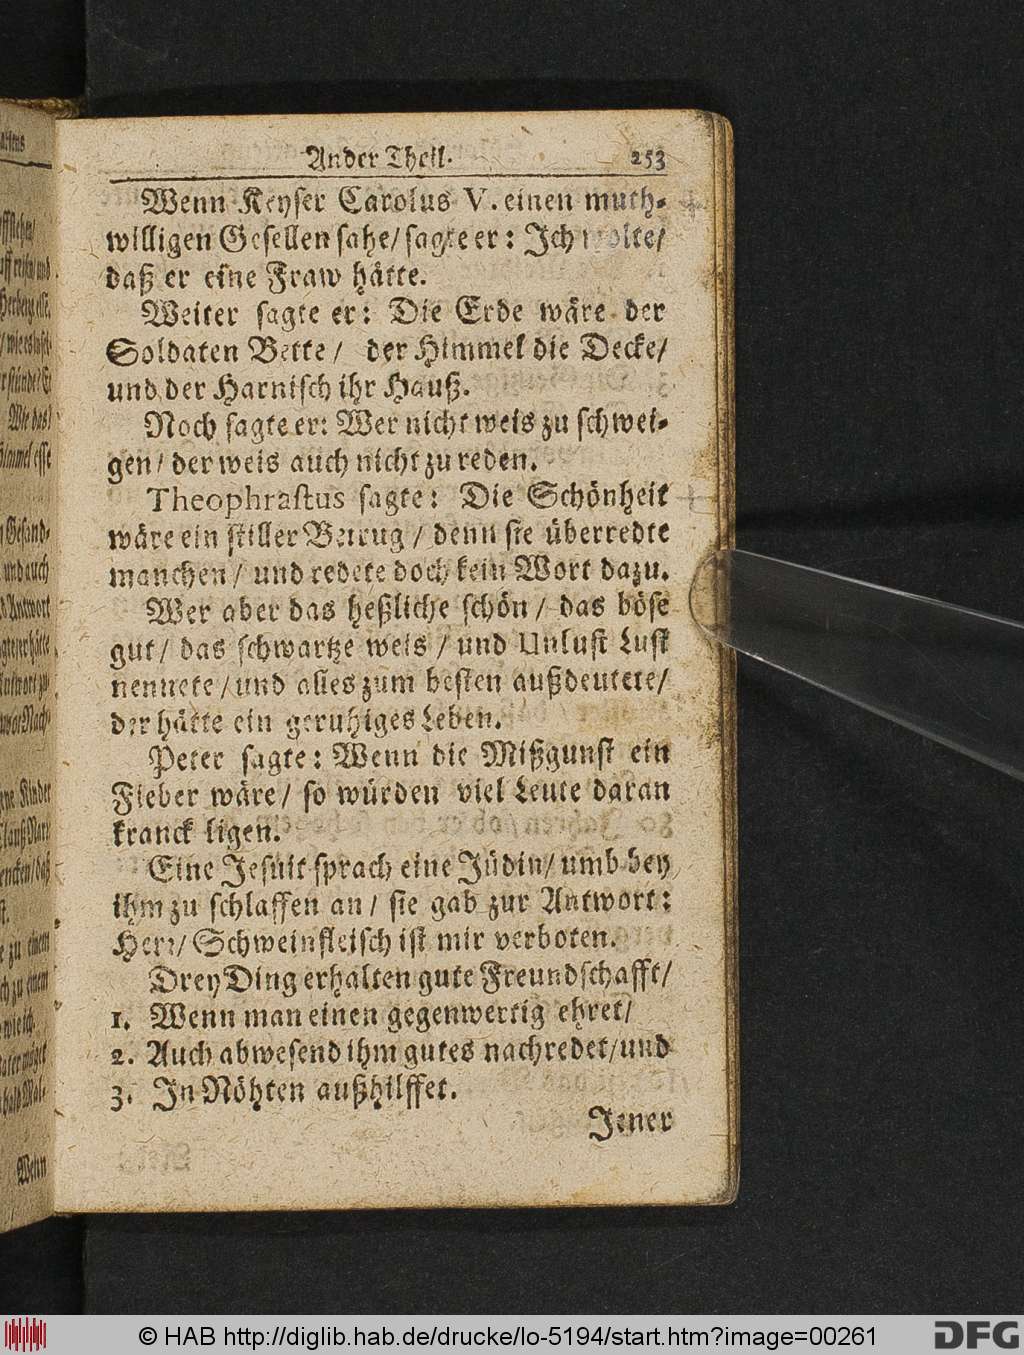 Ander Theil. 253
Wenn Keyser Carolus V. einen muth-
willigen Gesellen sahe/ sagte er: Jch wolte/
daß er eine Fraw hätte.
Weiter sagte er: Die Erde wäre der
Soldaten Bette/ der Himmel die Decke/
und der Harnisch ihr Hauß.
Noch sagte er: Wer nicht weis zu schwei-
gen/ der weis auch nicht zu reden.
Theophrastus sagte: Die Schönheit
wäre ein stiller Betrug/ denn sie überredte
manchen/ und redete doch kein Wort dazu.
Wer aber das heßliche schön/ das böse
gut/ das schwartze weis/ und Unlust Lust
nennete/ und alles zum besten außdeutete/
der hätte ein geruhiges Leben.
Peter sagte: Wenn die Mißgunst ein
Fieber wäre/ so würden viel Leute daran
kranck ligen.
Eine Jesuit sprach eine Jüdin/ umb bey
ihm zu schlaffen an/ sie gab zur Antwort:
Herr/ Schweinfleisch ist mir verboten.
Drey Ding erhalten gute Freundschafft/
1. Wenn man einen gegenwertig ehret/
2. Auch abwesend ihm gutes nachredet/ und
3. Jn Nöhten außhilffet.
Jener
Wenn
© HAB http://diglib.hab.de/drucke/lo-5194/start.htm?image=00261
DFG